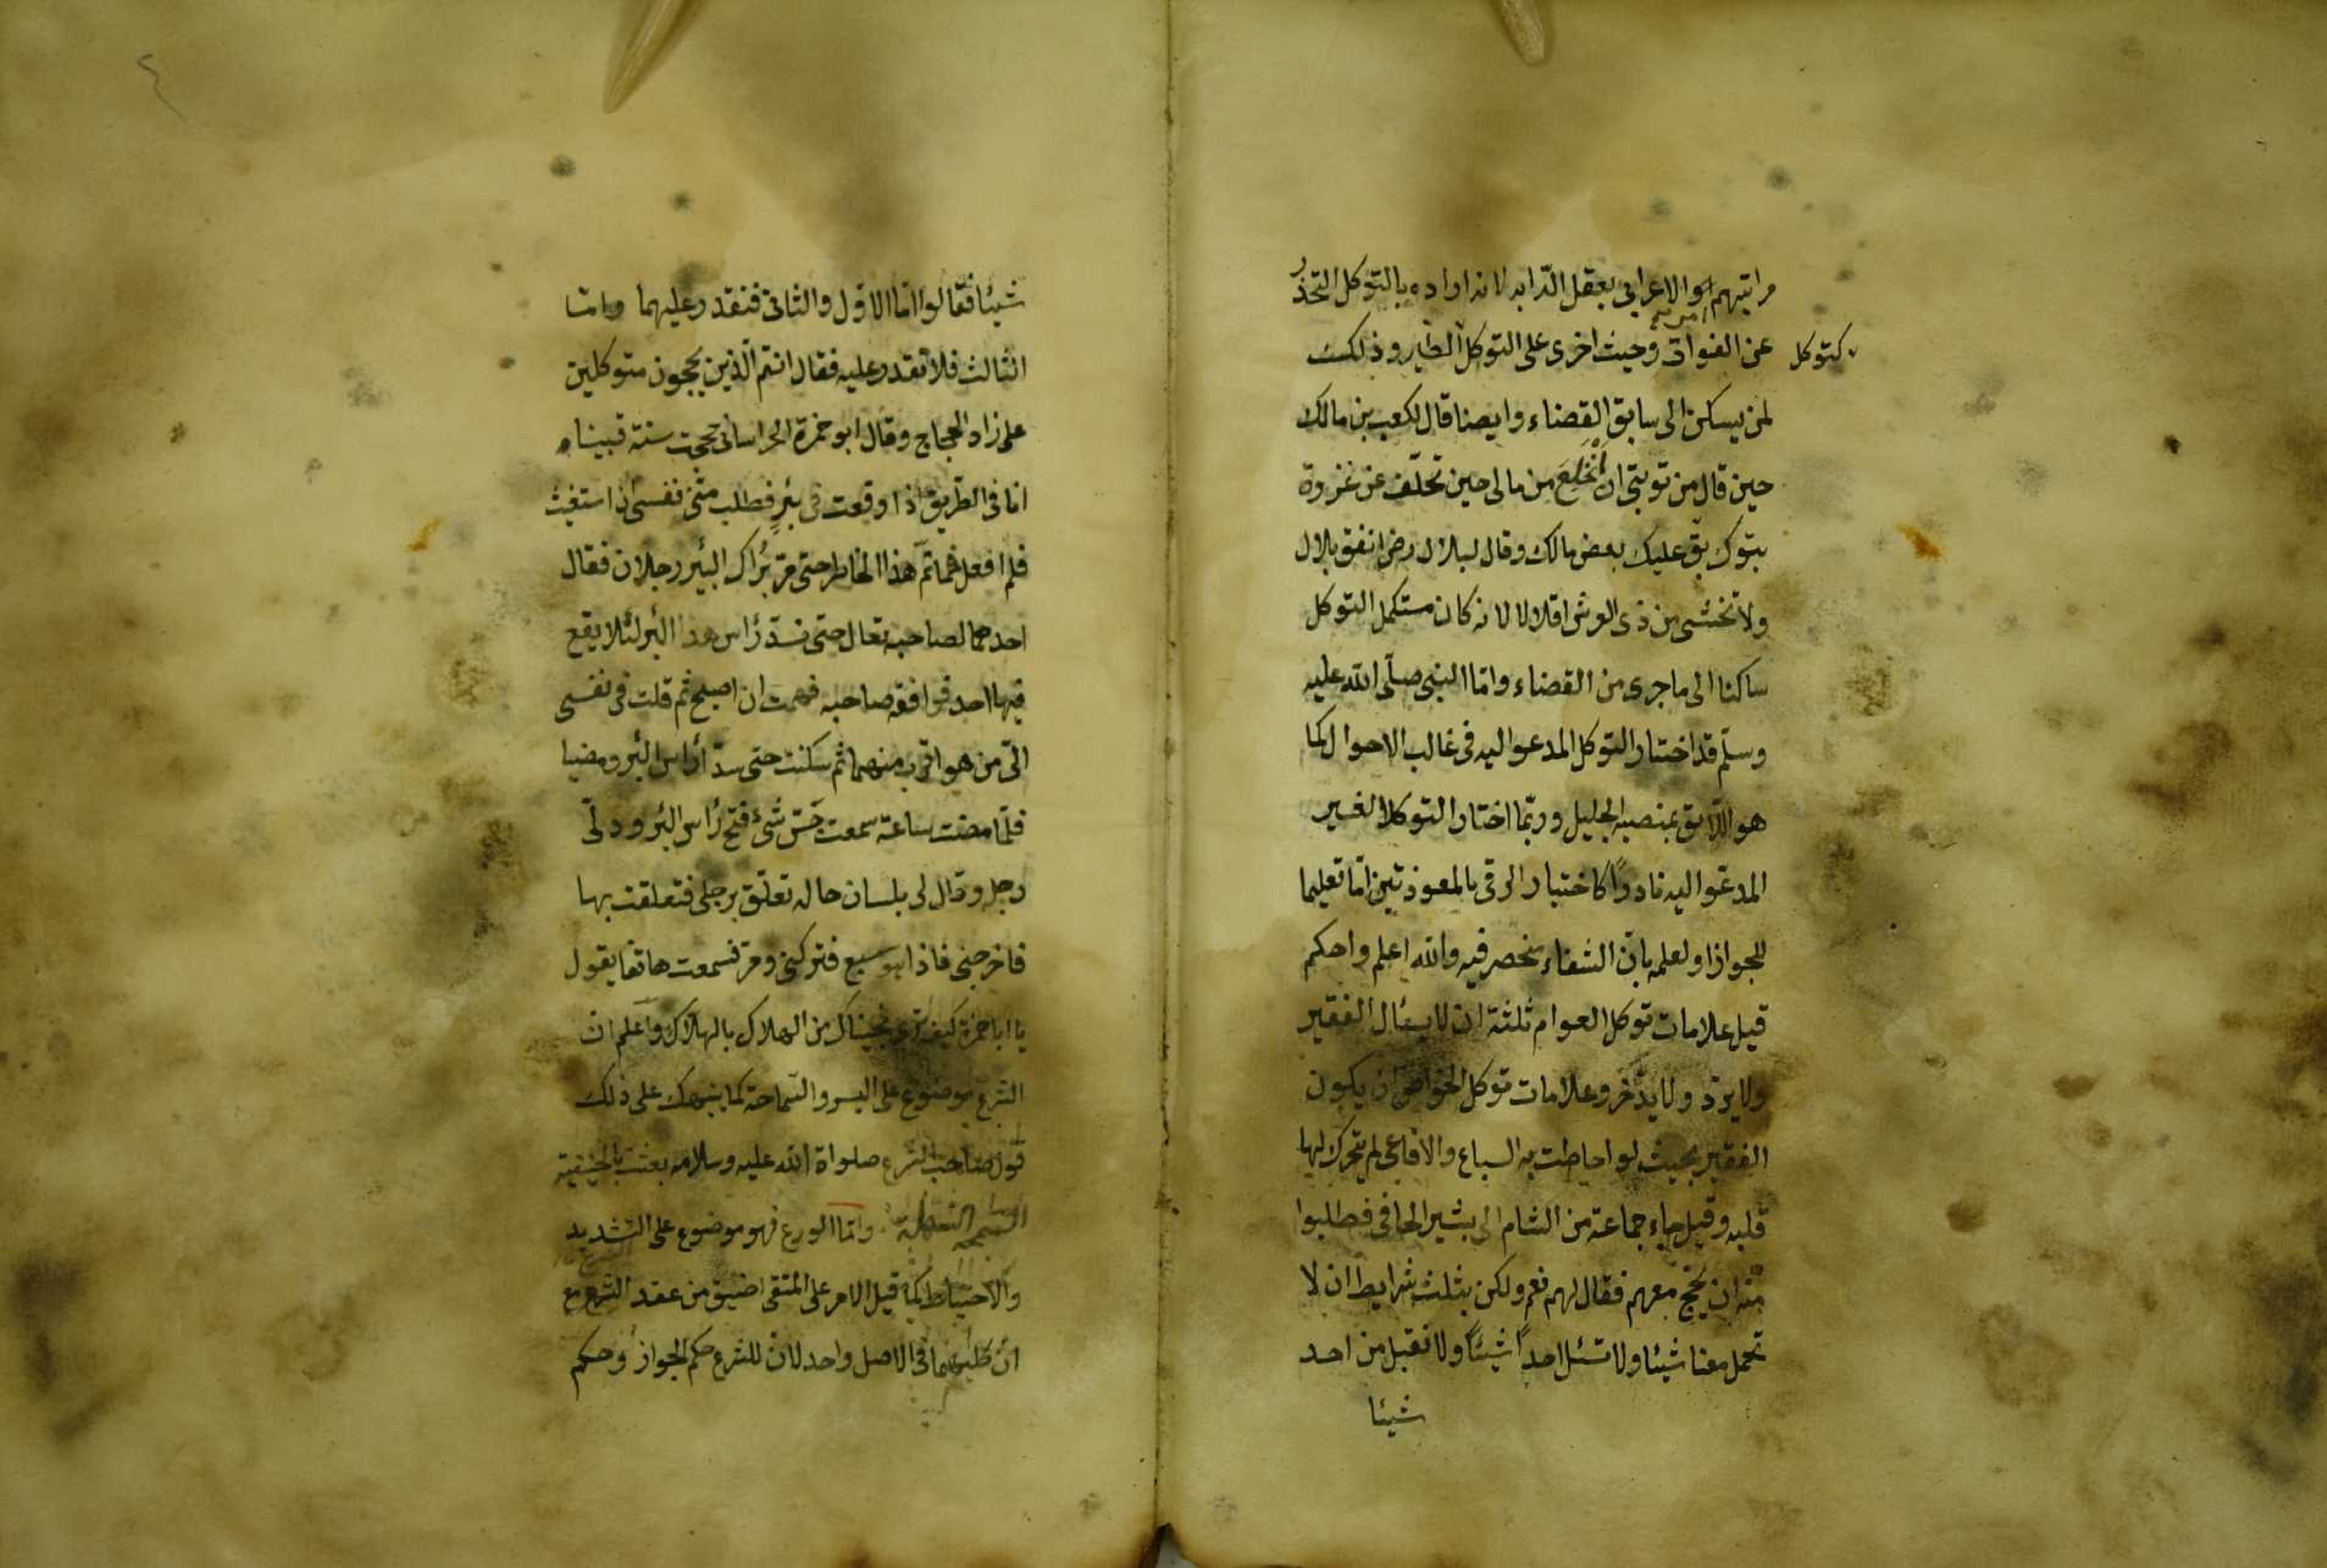 مراتبهم امر والاعرابى بعقل الدّابه لانه اراده بالتوكل التحذر
عن الفوات وحيث اخرى على التوكل كتوكل الطير وذلك
لمن يسكن الى سابق القضاء وايضا قال لكعب بن مالك
حين قال من توبتى ان انخلع من مالى حين تخلّف عن غزوة
تبوك بق عليك بعض مالك وقال لبلال رضى انفق بلال
ولا تخشى من ذى العرش اقلالا لانه كان مستكمل التوكل
ساكنا الى ما جرى من القضاء وامّا النبى صلّى الله عليه
وسلّم قد اختار التوكل المدعو اليه فى غالب الاحوال كما
هو اللّايق بمنصبه الجليل وربّما اختار التوكل الغير
المدعّو اليه نادرًا كاختيار الرقى بالمعوذتين امّا تعليما
للجواز او لعلمه بانّ الشفاء منحصر فيه والله اعلم واحكم
قيل علامات توكل العوام ثلثة ان لا يسئال الفقير
ولا يردّ ولا يدّخر وعلامات توكل الخواص ان يكون
الفقير بحيث لو احاطت به السباع والافاعى لم يتحرك لها
قلبه وقيل جاء جماعة من الشام الى بشير الحافى فطلبوا
منه ان يحّج معهم فقال لهم نعم ولكن بثلث شرايط ان لا
تحمل معنا شيئا ولا تسئل احدًا شيئًا ولا تقبل من احد
شيئا
شيئا فقالوا امّا الاوّل والثانى فنقدر عليهما وامّا
الثالث فلا نقدر عليه فقال انتم الّذين يحجون متوكلين
على زاد الحجاج وقال ابو حمزة الخراسانى حججت سنة فبينا
انا فى الطريق اذا وقعت فى بئر فطلب منّى نفسى ان استغيث
فلم افعل فما تمّ هذا الخاطر حتى مرّ برأك البئر رجلان فقال
احدهما لصاحبه تعال حتى نسدّ رأس هذا البئر لئلا يقع
فيها احد فوافقه صاحبه فهمت ان اصيح ثم قلت فى نفسى
الى من هو اقرب منهما ثم سكنت حتى سدّا رأس البئر ومضيا
فلمّا مضت ساعة سمعت حسّ شىء فتح رأس البئر ودلّى
رجله وقال لى بلسان حاله تعلّق برجلى فتعلقت بها
فاخرجنى فاذا هو سبع فتركنى ومرّ فسمعت هاتفا يقول
يا ابا حمزة كيف ترى نجيناك من الهلاك بالهلاك واعلم انّ
الشرع موضوع على اليسر والسّماحة كما ينبهك على ذلك
قول صاحب الشرع صلواة الله عليه وسلامه بعثت بالحنيفية
السمحة السهلة وامّا الورع فهو موضوع على التشديد
والاحتياط كما قيل الامر على المتقى اضيق من عقد التسع مع
انّ كليهما فى الاصل واحد لانّ للشرع حكم الجواز وحكم